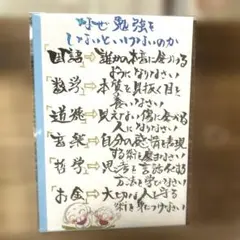 なぜ勉強を
しないといけないのか
国語⇨誰かの本音に気づける
ようになりなさい
数学⇨本質を見抜く目を
養いなさい
道徳⇨見えない傷に気づける
人になりなさい
音楽⇨自分の感情を表現
する術を学びなさい
哲学⇨思考を言語化する
方法を学びなさい
お金⇨大切な人を守る
術を身につけなさい